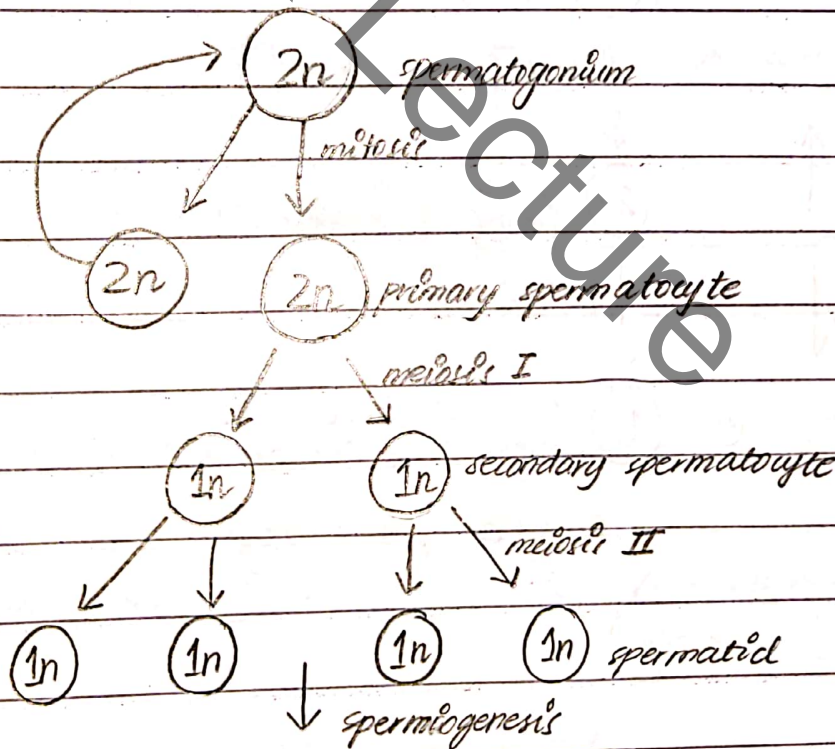 2n spermatogonium
mitosis
2n 2n primary spermatocyte
meiosis I
1n 1n secondary spermatocyte
meiosis II
1n 1n 1n 1n spermatid
spermiogenesis
Lecture